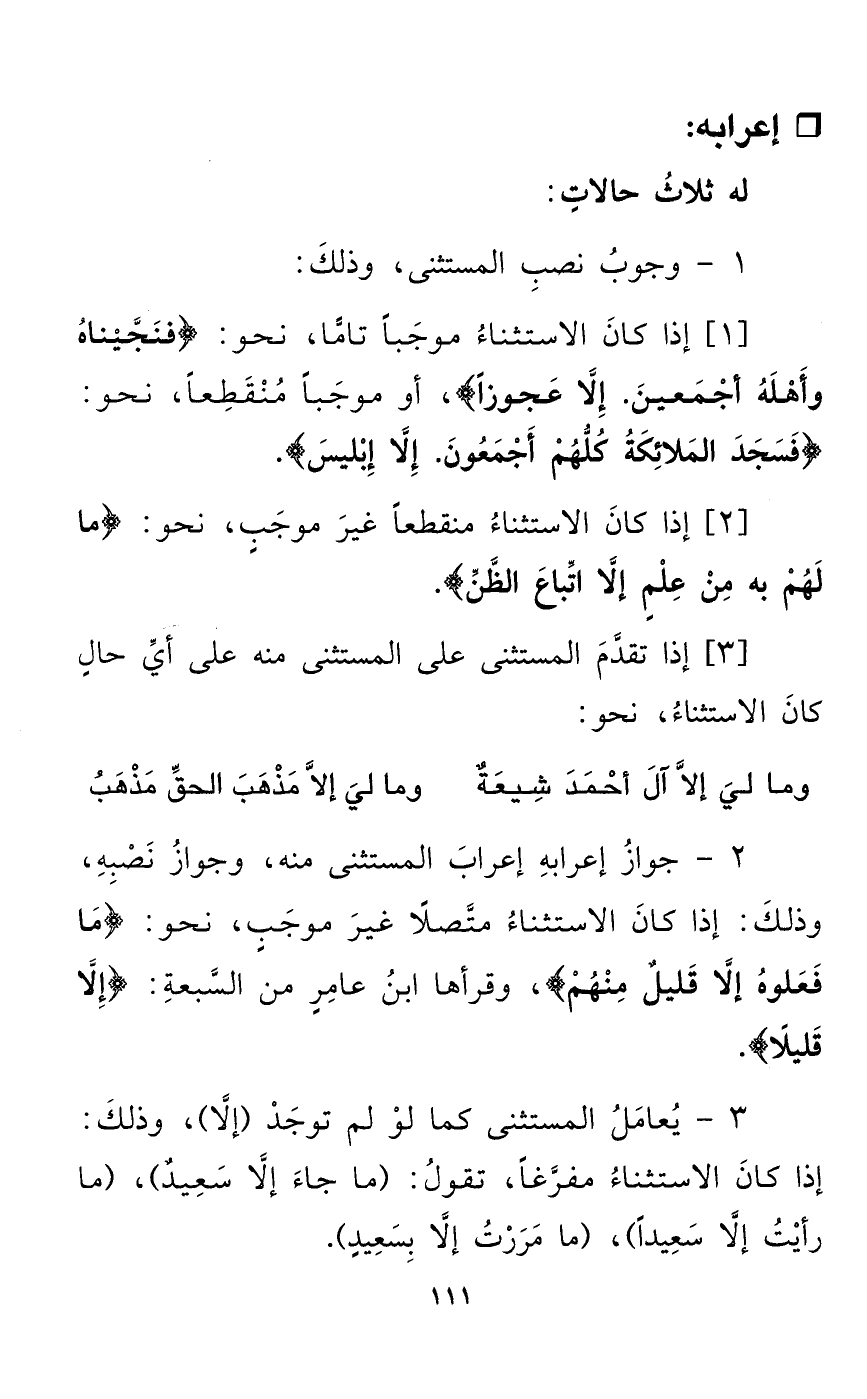 □ إعرابه:
له ثلاثُ حالاتٍ:
١ - وجوبُ نصبِ المستثنى، وذلكَ:
[١] إذا كانَ الاستثناءُ موجَباً تامًّا، نحو: ﴿فنَجَّيْناهُ
وأَهْلَهُ أجْمَعينَ. إِلَّا عَجوزاً﴾، أو موجَباً مُنْقَطِعاً، نحو:
﴿فَسَجَدَ المَلائِكَةُ كُلُّهُمْ أَجْمَعُونَ. إِلَّا إِبْليسَ﴾.
[٢] إذا كانَ الاستثناءُ منقطعاً غيرَ موجَبٍ، نحو: ﴿ما
لَهُمْ به مِنْ عِلْمٍ إلَّا اتِّباعَ الظَّنِّ﴾.
[٣] إذا تقدَّمَ المستثنى على المستثنى منه على أيِّ حالٍ
كانَ الاستثناءُ، نحو:
وما ليَ إلاَّ آلَ أحْمَدَ شِيعَةٌ وما ليَ إلاَّ مَذْهَبَ الحقِّ مَذْهَبُ
٢ - جوازُ إعرابهِ إعرابَ المستثنى منه، وجوازُ نَصْبِهِ،
وذلكَ: إذا كانَ الاستثناءُ متَّصلًا غيرَ موجَبٍ، نحو: ﴿مَا
فَعَلوهُ إلَّا قَليلٌ مِنْهُمْ﴾، وقرأها ابنُ عامِرٍ من السَّبعةِ: ﴿إِلَّا
قَليلًا﴾.
٣ - يُعامَلُ المستثنى كما لوْ لم توجَدْ (إلَّا)، وذلكَ:
إذا كانَ الاستثناءُ مفرَّغاً، تقولُ: (ما جاءَ إلَّا سَعِيدٌ)، (ما
رأيْتُ إلَّا سَعِيداً)، (ما مَرَرْتُ إلَّا بِسَعِيدٍ).
١١١